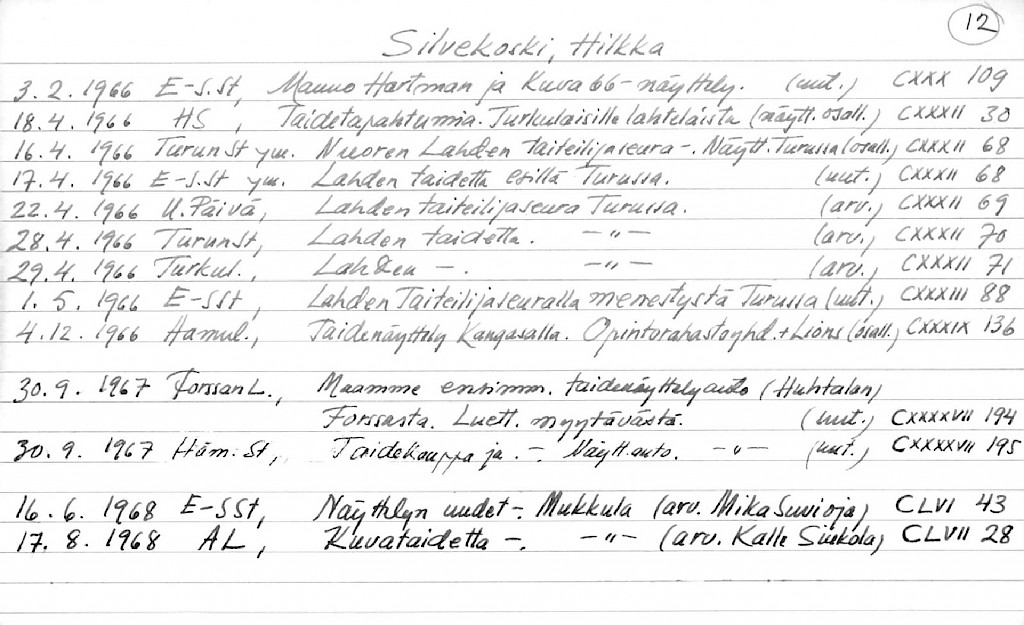 12
Silvekoski, Hilkka
3.2.1966 E-S.St, Mauno Hartman ja Kuva 66-näyttely. (uut.) CXXX 109
18.4.1966 HS, Taidetapahtumia. Turkulaisille lahtelaista (näytt.osall.) CXXXII 30
16.4.1966 TurunSt ym. Nuoren Lahden taiteilijaseura-. Näytt.Turussa (osall.) CXXXII 68
17.4.1966 E-S.St ym. Lahden taidetta esillä Turussa. (uut.) CXXXII 68
22.4.1966 U.Päivä, Lahden taiteilijaseura Turussa. (arv.) CXXXII 69
28.4.1966 TurunSt, Lahden taidetta. -"- (arv.) CXXXII 70
29.4.1966 Turkul., Lahden -. -"- (arv.) CXXXII 71
1.5.1966 E-SSt, Lahden Taiteilijaseuralla menestystä Turussa (uut.) CXXXIII 88
4.12.1966 Hämul., Taidenäyttely Kangasalla. Opintorahastoyhd.+Lions (osall.) CXXXIX 136
30.9.1967 ForssanL., Maamme ensimm. taidenäyttelyauto (Huhtalan)
Forssasta. Luett. myytävästä. (uut.) CXXXXVII 194
30.9.1967 Häm.St, Taidekauppa ja .-. Näytt.auto. -"- (uut.) CXXXXVII 195
16.6.1968 E-SSt, Näyttelyn uudet-. Mukkula (arv. Mika Suvioja) CLVI 43
17.8.1968 AL, Kuvataidetta -. -"- (arv. Kalle) CLVII 28